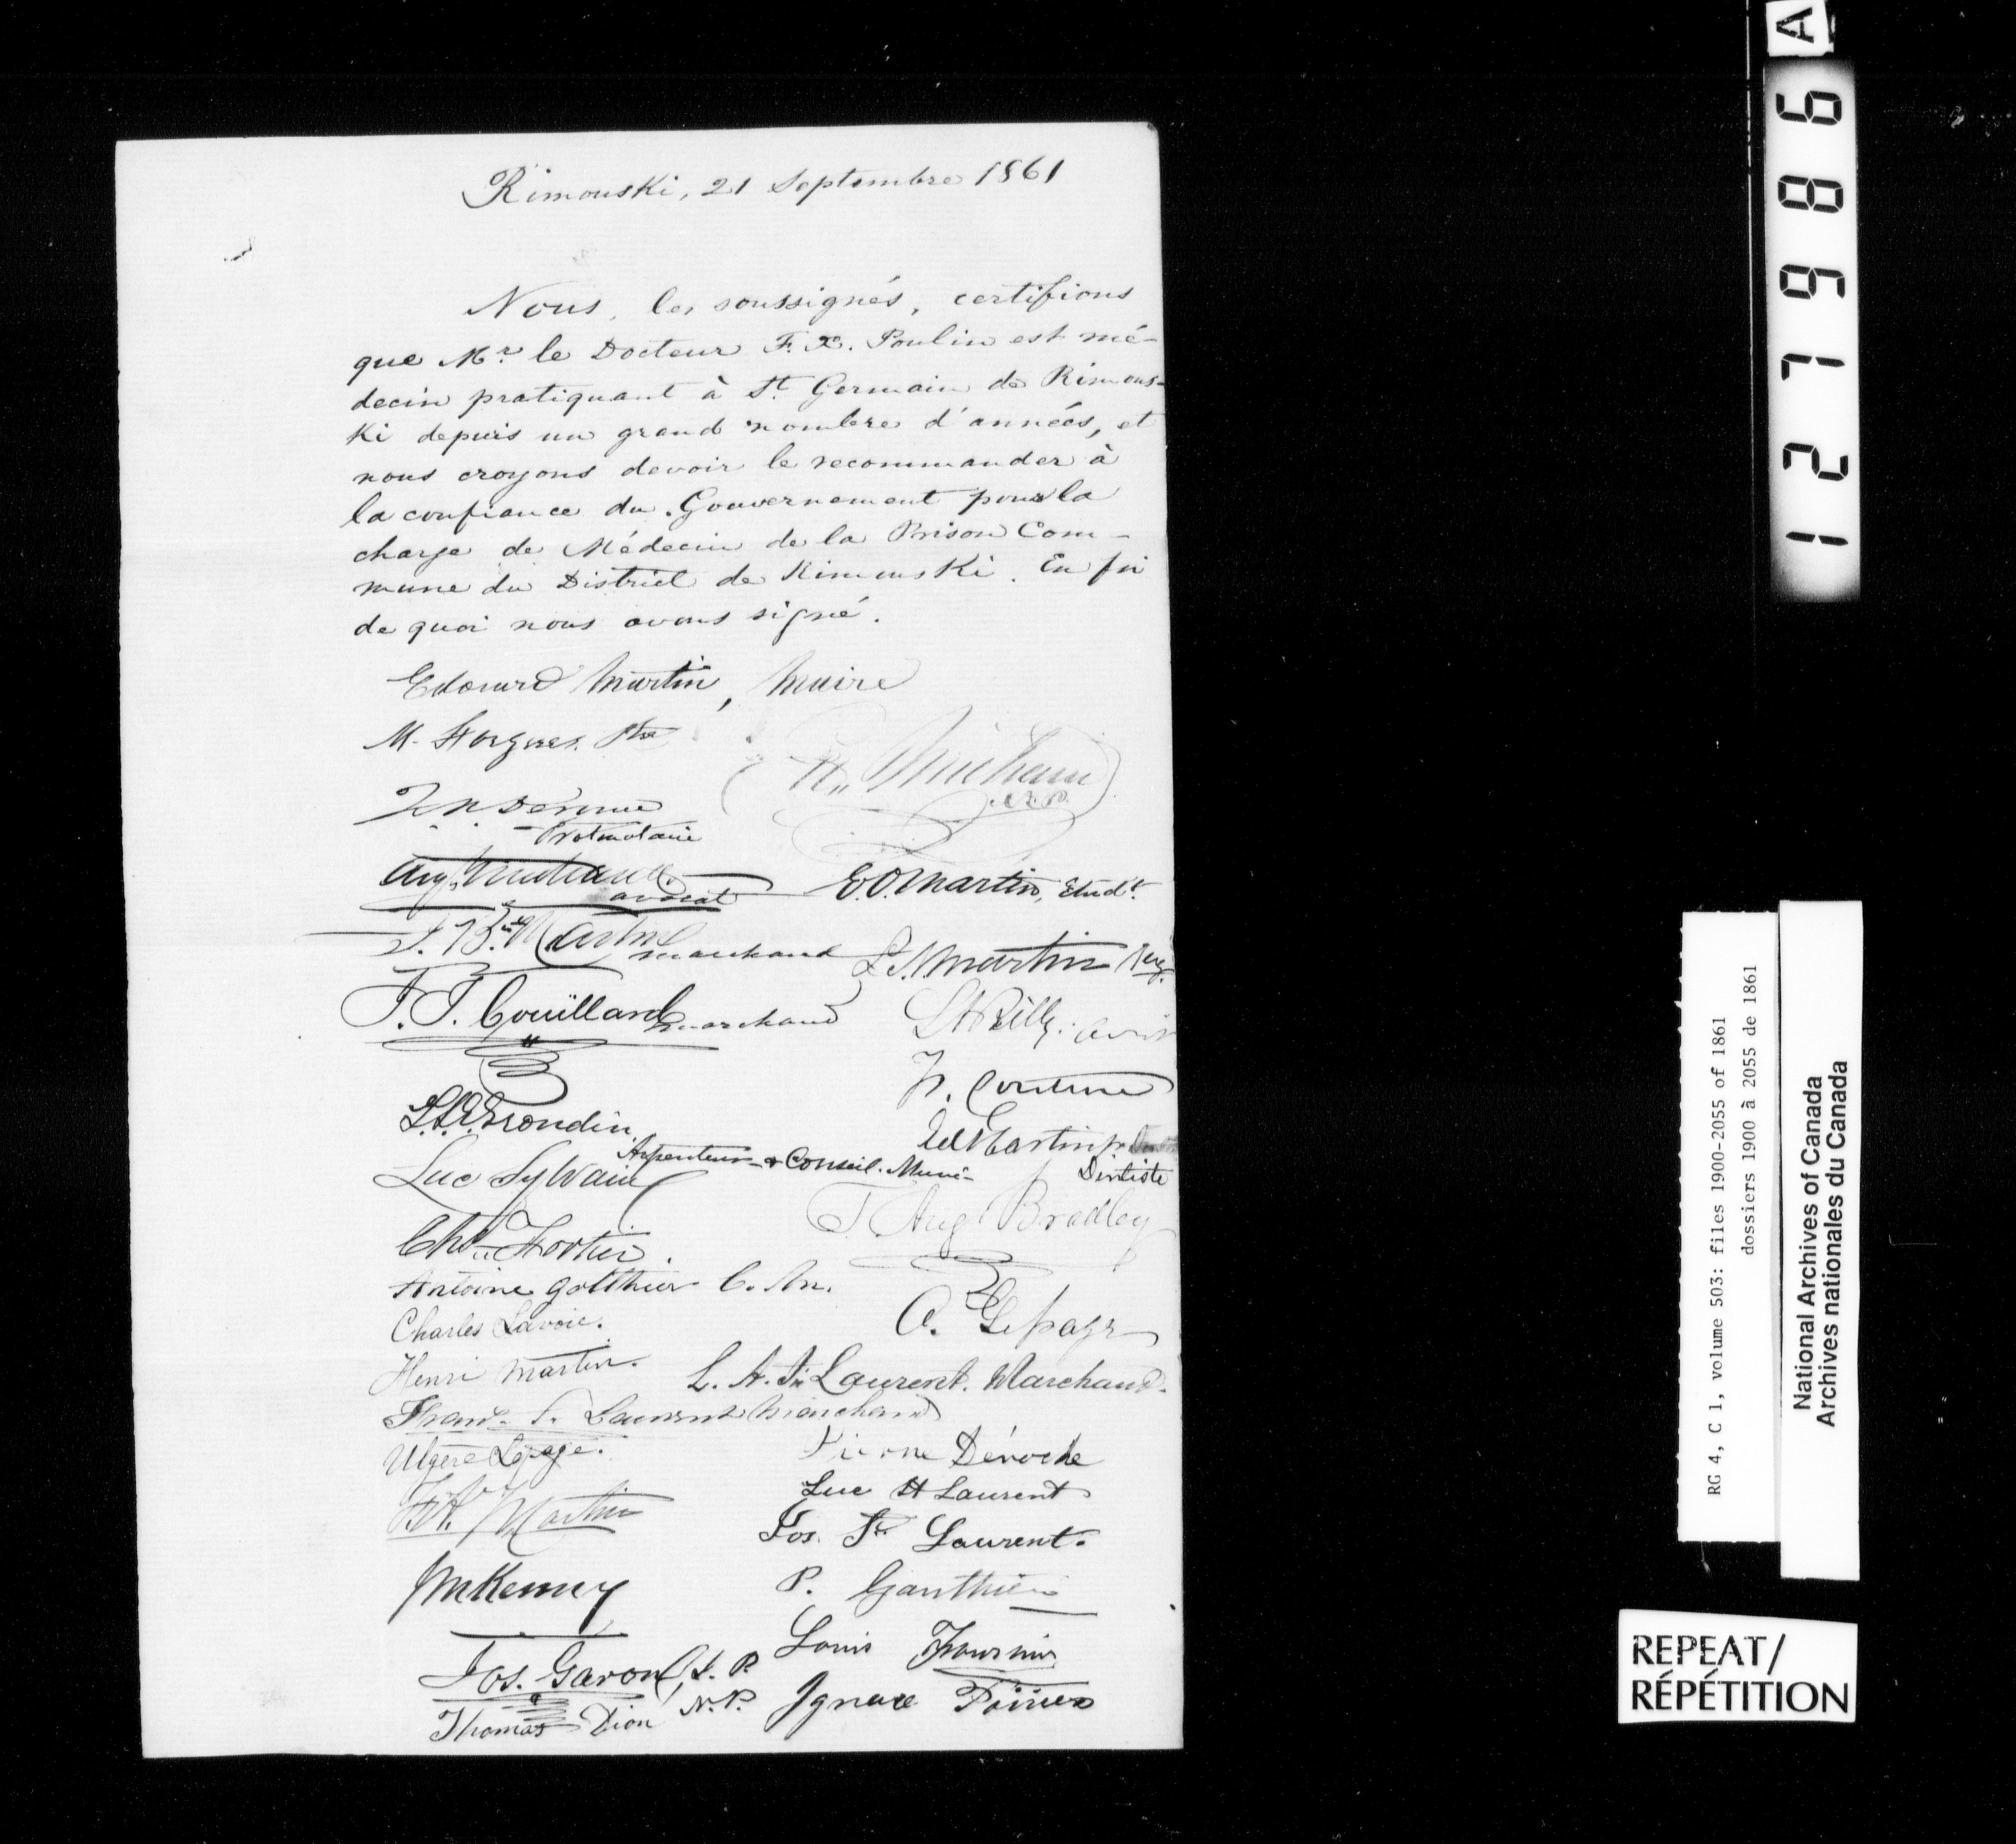 Rimouski, 21 Septembre 1861
Nous, les soussignés, certifions
que Mr. le Docteur F. X. Poulin est mé-
decin pratiquant à St. Germain de Rimous-
ki depuis un grand nombre d'années, et
nous croyons devoir le recommander à
la confiance du Gouvernement pour la
charge de Médecin de la Prison Com-
mune du District de Rimouski. En foi
de quoi nous avons signé.
Edouard Martin, Maire
M. Forgues. Ptre
Protonotaire
avocat
E. O. Martin, Etudt.
Martin marchand
Martin
J. T. Couillard marchand
Arpenteur & Conseil. Muni-
Luc Sylvain
Dintiste
Aug. Bradley
Chs. Fortier.
Antoine Golthier C. M.
A. Lepage
Charles Lavoie.
Henri Martin.
L. H. St. Laurent. Marchand.
St. Laurent Marchand
Ulgère Lepage.
Déroche
Martin
Luc St Laurent
Jos. St. Laurent.
P. Gauthier
Louis Fournier
Jos. Garon, J. P.
N. P.
Ignace
Thomas Dion
127986
A
RG 4, C 1, volume 503: files 1900-2055 of 1861
dossiers 1900 à 2055 de 1861
National Archives of Canada
Archives nationales du Canada
REPEAT/
RÉPÉTITION